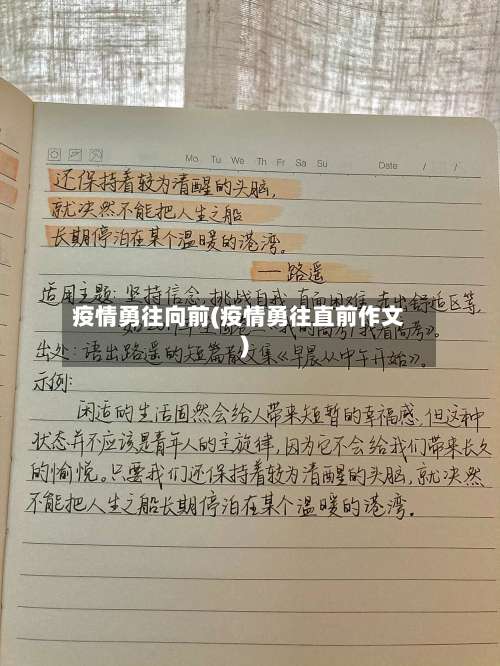 Mo Tu We Th Fr Sa Su Date / /
还保持着较为清醒的头脑,
就决然不能把人生之船
长期停泊在某个温暖的港湾。
——路遥
适用主题:坚持信念,挑战自我,直面困难,走出舒适区等,
疫情勇往向前(疫情勇往直前作文
)
出处:语出路遥的短篇散文集《早晨从中午开始》。
示例:
闲适的生活固然会给人带来短暂的幸福感,但这种
状态并不应该是青年人的主旋律,因为它不会给我们带来长久
的愉悦。只要我们还保持着较为清醒的头脑,就决然
不能把人生之船长期停泊在某个温暖的港湾。